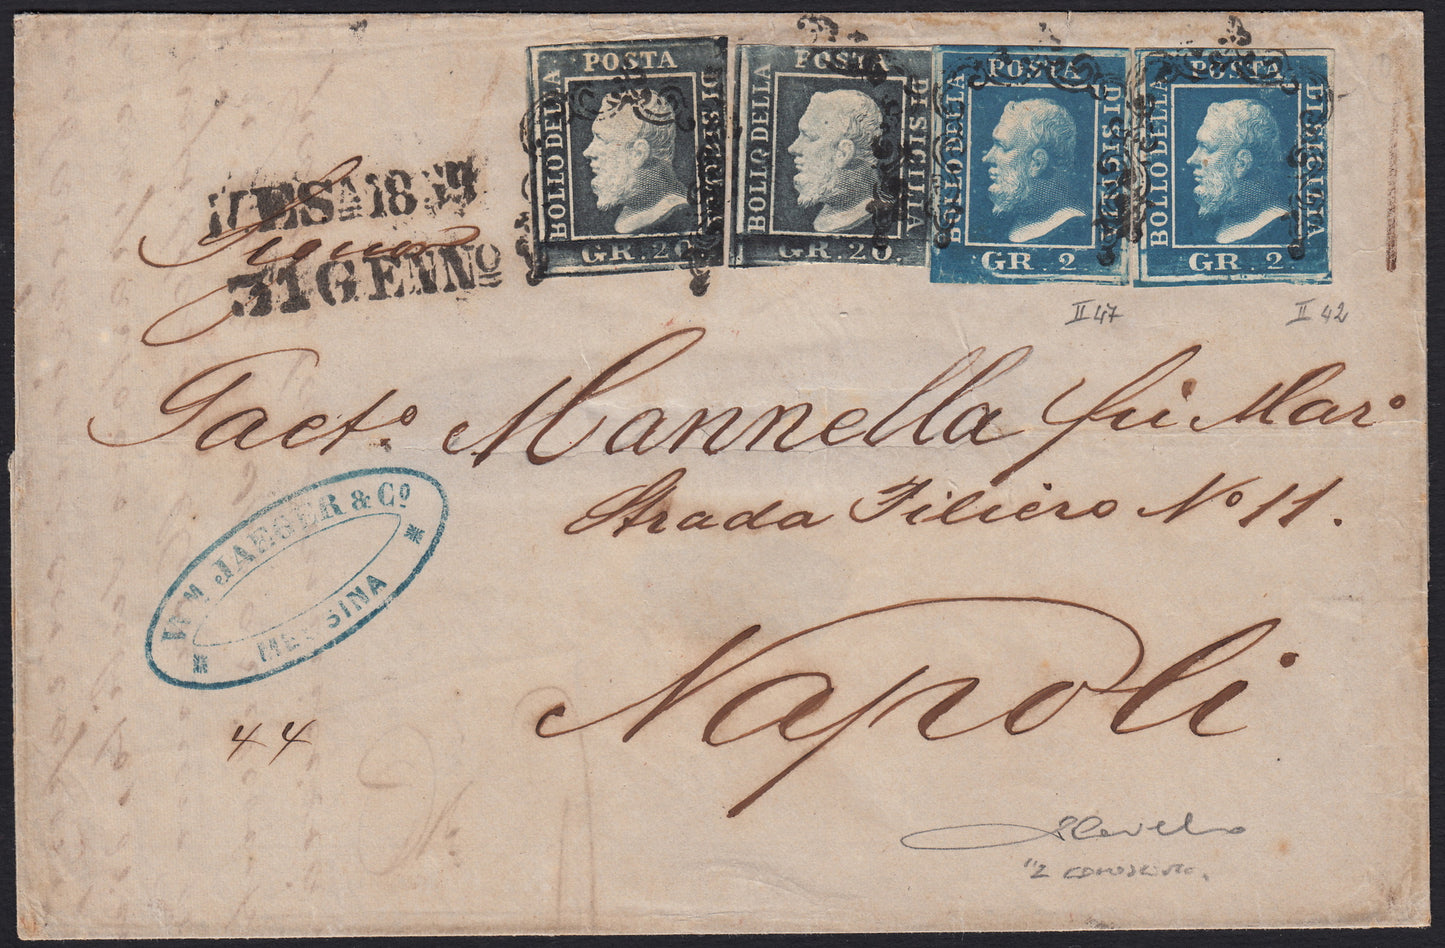 POSTA
BOLLO DELLA
DI SICILIA
GR. 20.
POSTA
BOLLO DELLA
DI SICILIA
GR. 20.
POSTA
BOLLO DELLA
DI SICILIA
GR. 2.
POSTA
BOLLO DELLA
DI SICILIA
GR. 2.
MESA 1859
31 GENNO
II 47
II 42
Gaeto. Mannella fu Maro
Strada Filiero No 11.
WM JAEGER & Co
MESSINA
Napoli
44